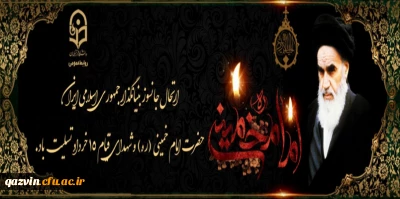 ارتحال جانسوز بنیانگذار جمهوری اسلامی ایران
حضرت امام خمینی (ره) و شهدای قیام ۱۵ خرداد تسلیت باد.
امام خمینی
ره
qazvin.cfu.ac.ir